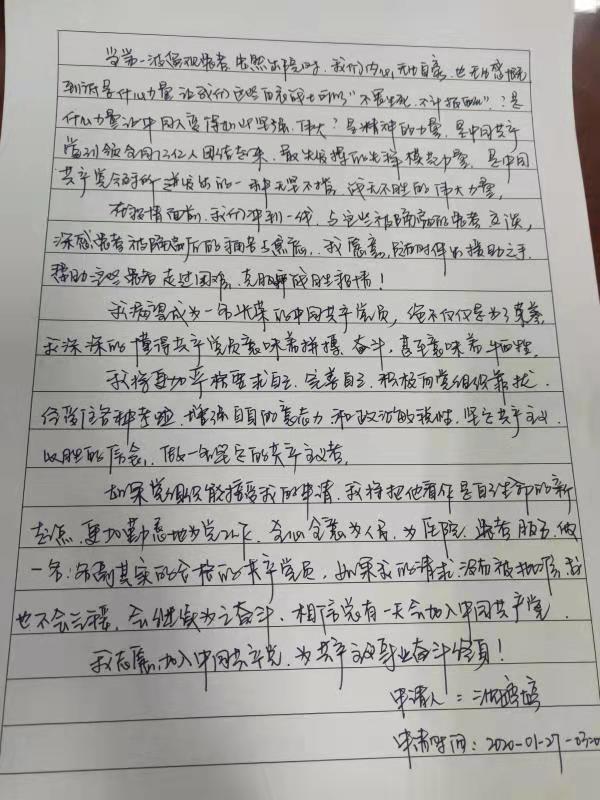 当第一波留观患者出然出院时,我们内心无比自豪,也无比感慨
到底是什么力量让我们这些白衣战士可以"不畏生死,不计报酬"?是
什么力量让中国人变得如此坚强,伟大?是精神的力量,是中国共产
党引领全国13亿人团结起来,最先发挥的先锋模范力量,是中国
共产党领导所迸发出的一种无坚不摧,战无不胜的伟大力量。
在疫情面前,我们冲到一线,与这些被隔离的患者交谈,
深感患者被隔离后的痛苦与焦虑,我愿意,随时伸出援助之手,
帮助这些患者走过困难,克服并战胜疫情!
我渴望成为一名光荣的中国共产党员,绝不仅仅是为了荣誉
我深深的懂得共产党员意味着拼搏,奋斗,甚至意味着牺牲。
我将更加严格要求自己,完善自己,积极向党组织靠拢,
经受住各种考验,增强自身的意志力和政治敏锐性,坚定共产主义
必胜的信念,做一名坚定的共产主义者。
如果党组织能接受我的申请,我将把他看作是自己生命的新
起点,更加勤恳地为党工作,全心全意为人民,为医院,患者服务,做
一名名副其实的合格的共产党员,如果我的请求没有被批准,我
也不会气馁,会继续为之奋斗,相信总有一天会加入中国共产党。
我志愿加入中国共产党,为共产主义事业奋斗终身!
申请人:
申请时间:2020-01-27-03:20